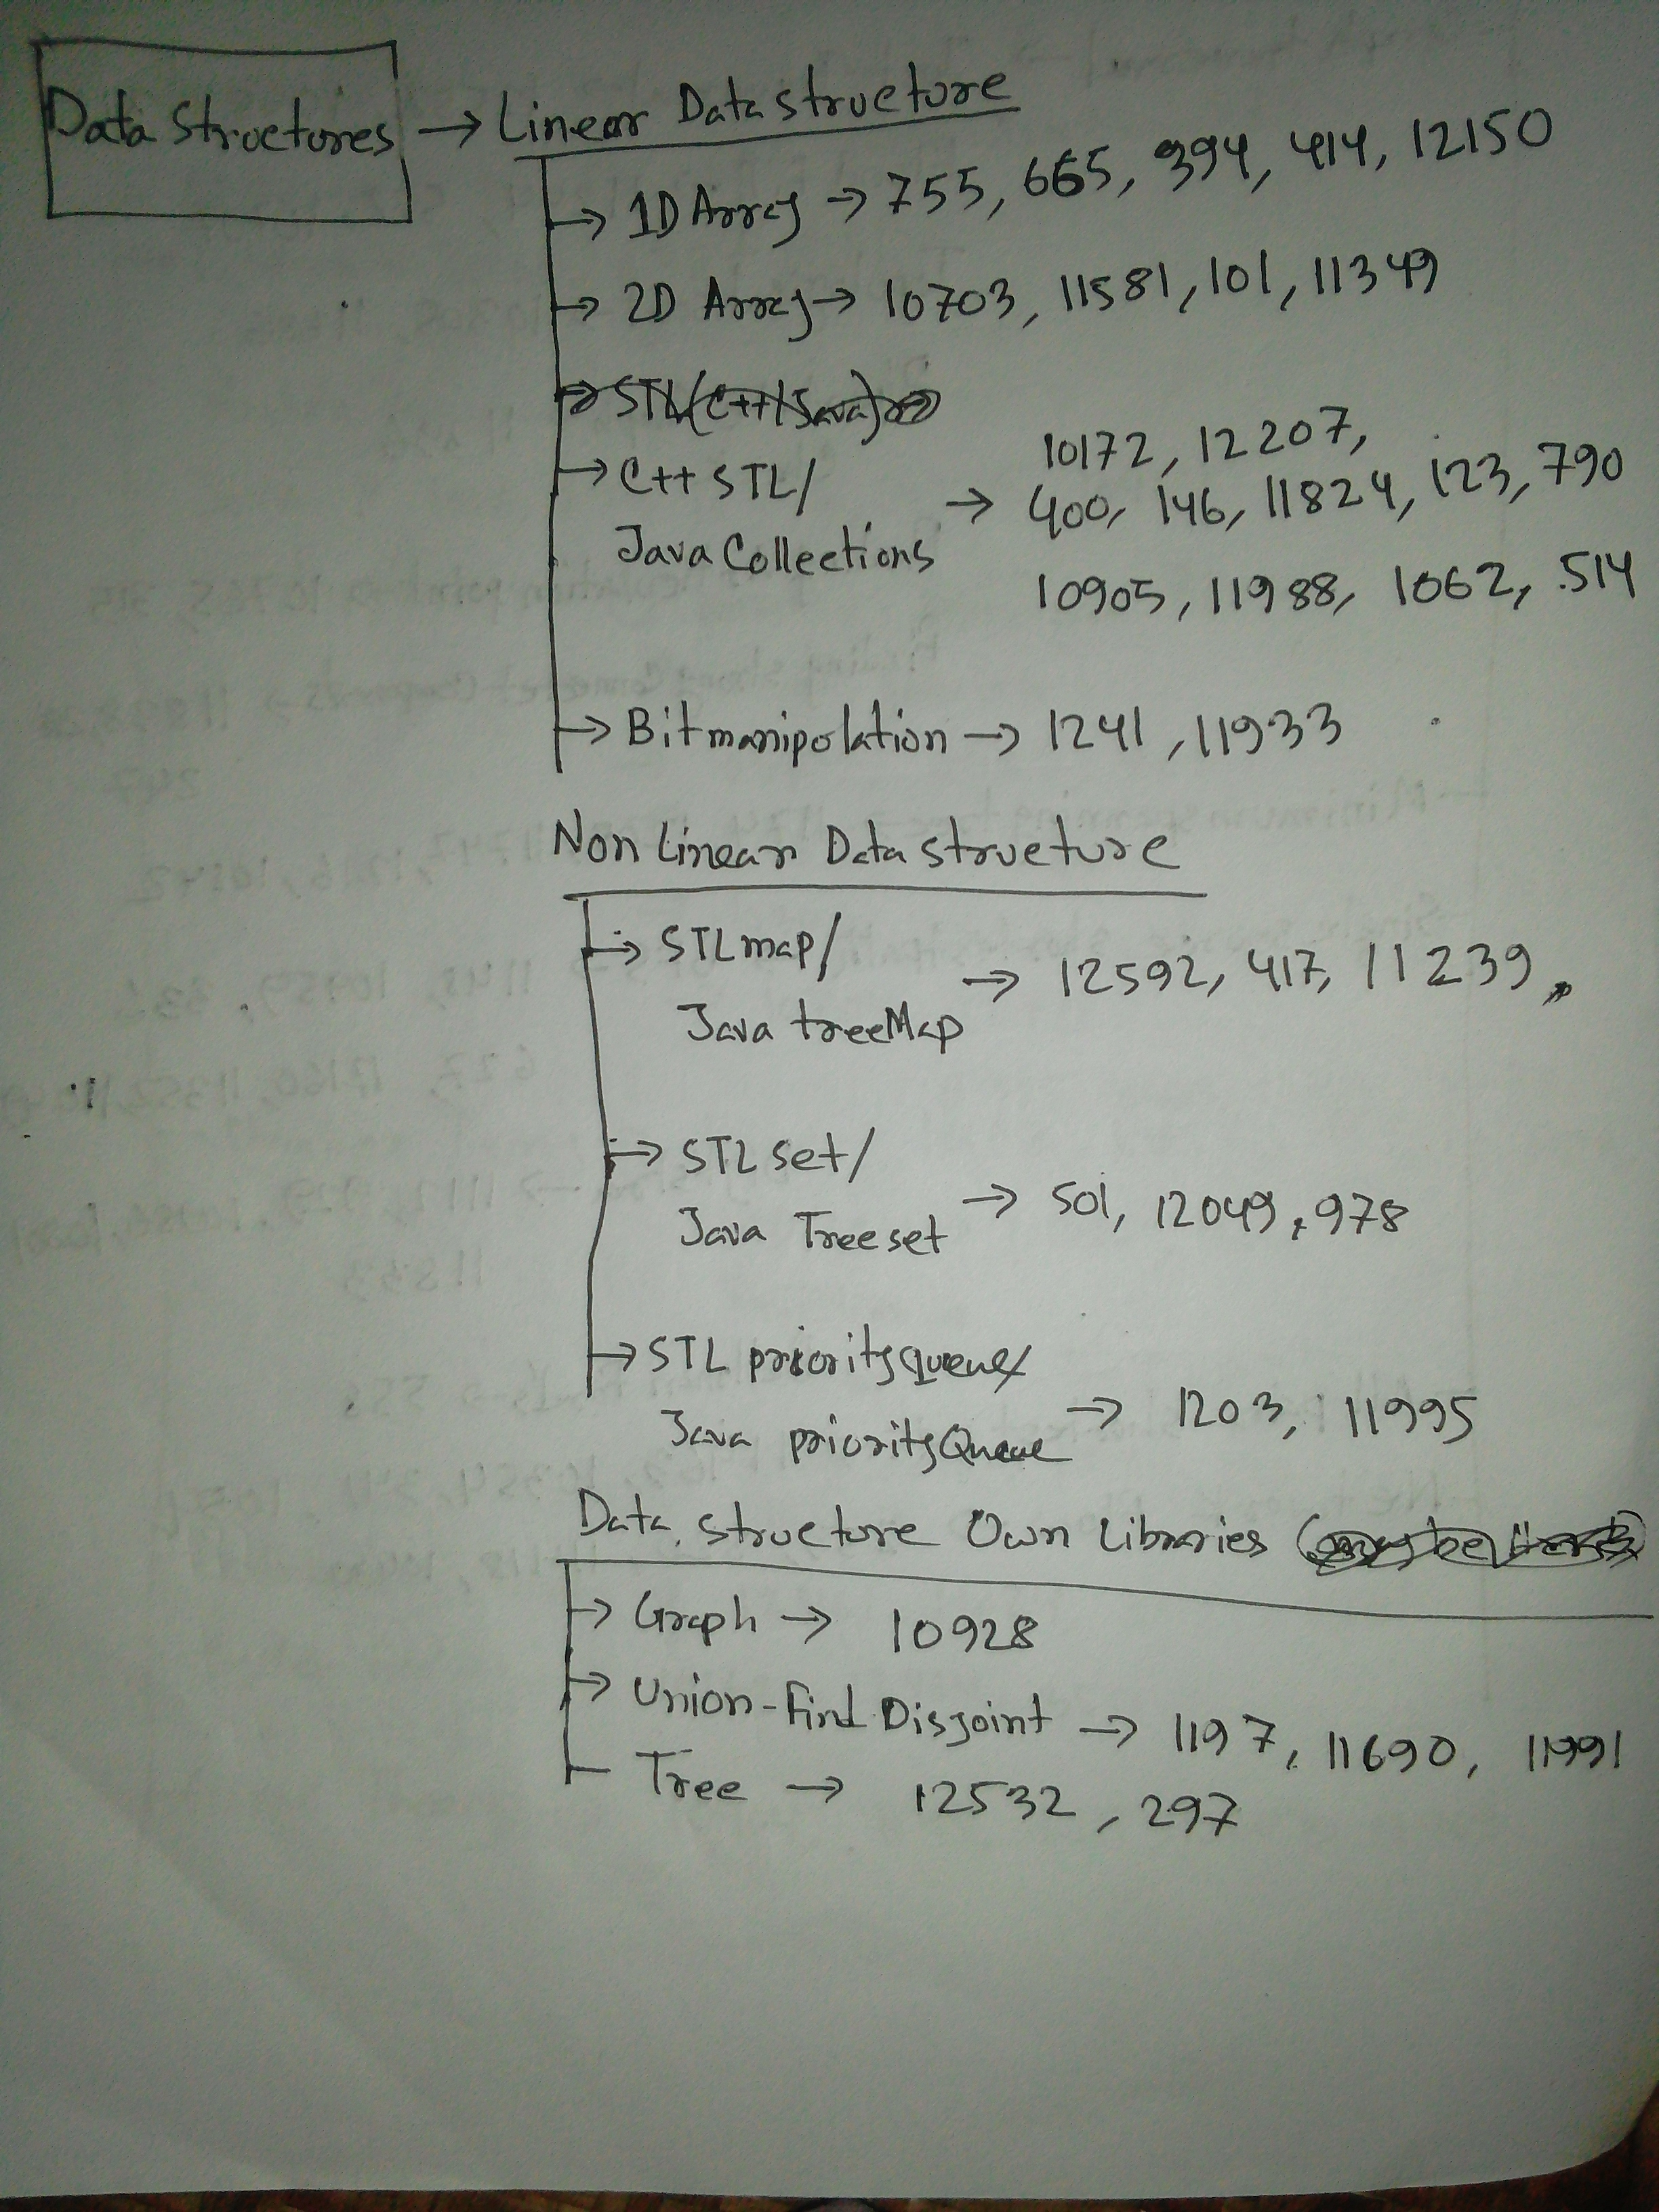 Data Structures → Linear Data structure
→ 1D Array → 755, 665, 394, 414, 12150
→ 2D Array → 10703, 11581, 101, 11349
→ STL(C++/Java) →
→ C++ STL/
Java Collections →
10172, 12207,
400, 146, 11824, 123, 790
10905, 11988, 1062, 514
→ Bitmanipulation → 1241, 11933
Non Linear Data structure
→ STL map/
Java treeMap → 12592, 417, 11239,
→ STL set/
Java Treeset → 501, 12049, 978
→ STL priorityqueue/
Java priorityQueue → 1203, 11995
Data structure Own Libraries
→ Graph → 10928
→ Union-Find Disjoint → 1197, 11690, 11991
Tree → 12532, 297